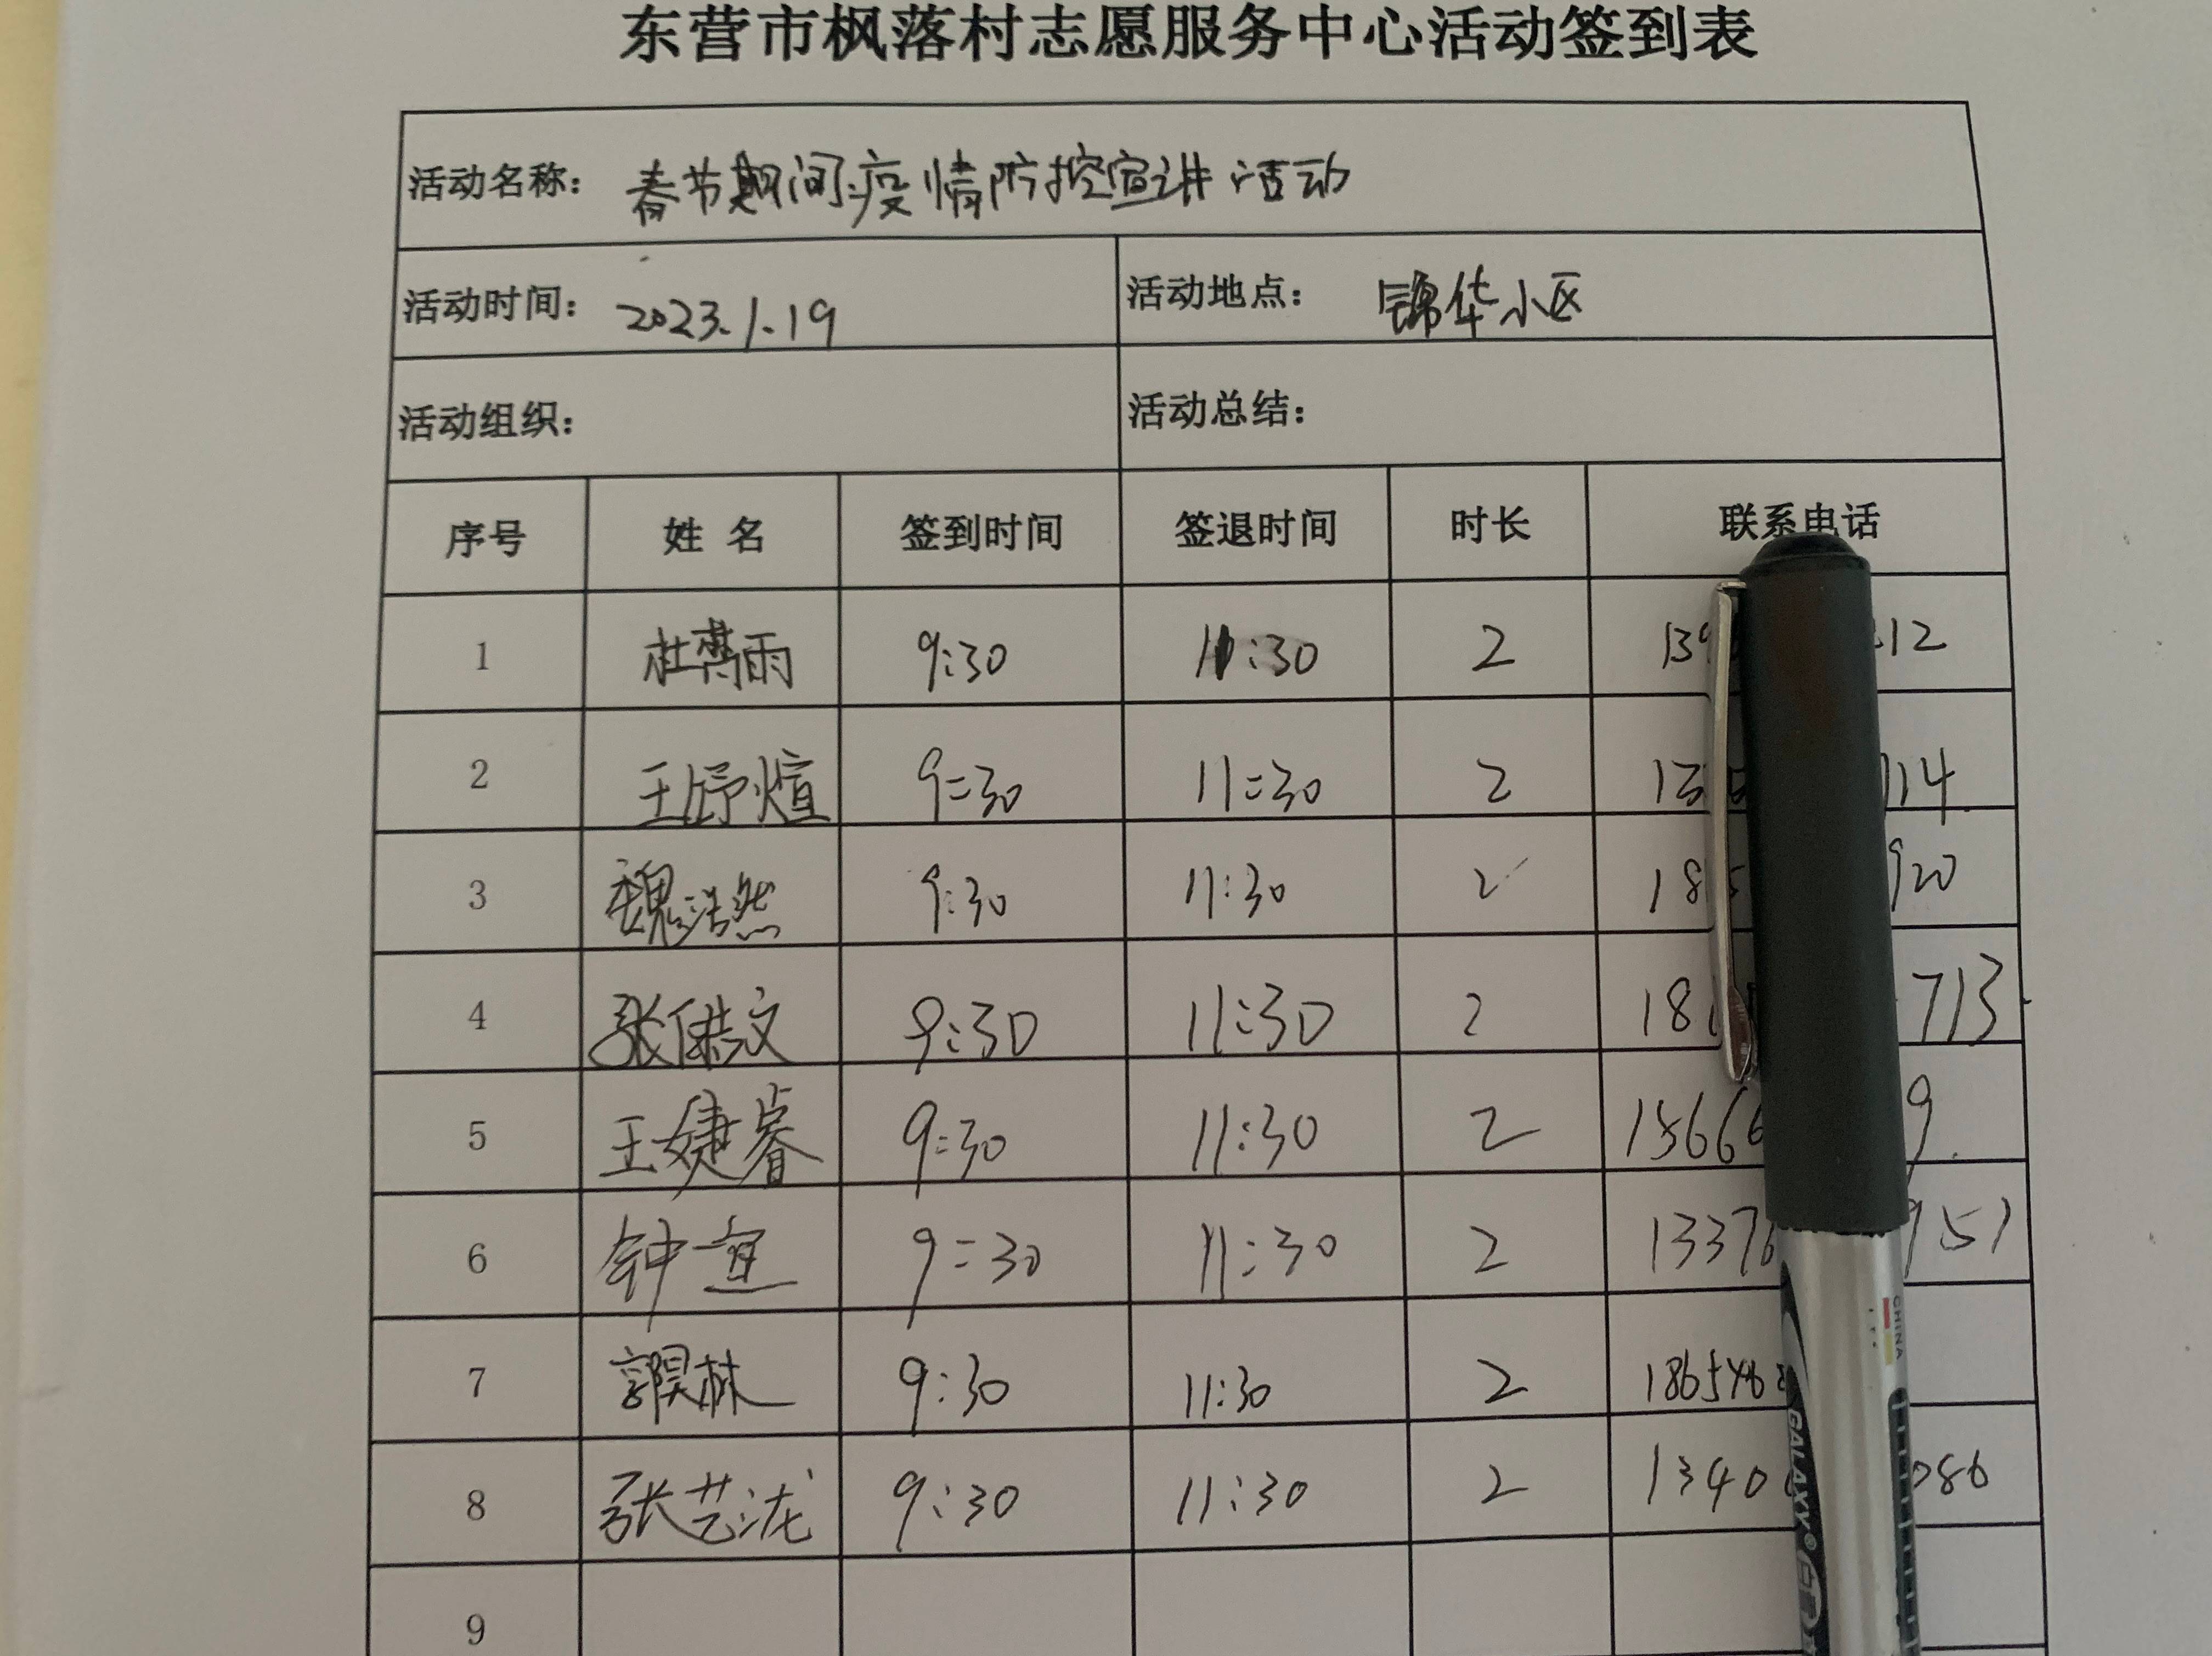 东营市枫落村志愿服务中心活动签到表
活动名称： 春节期间疫情防控宣讲活动
活动时间： 2023.1.19 活动地点： 锦华小区
活动组织： 活动总结：
序号 姓 名 签到时间 签退时间 时长 联系电话
1 杜 雨 9:30 11:30 2 139 12
2 王舒煊 9:30 11:30 2 13 114
3 魏浩然 9:30 11:30 2 18 920
4 张 文 9:30 11:30 2 18 713
5 王婕睿 9:30 11:30 2 15666 9
6 钟一 9:30 11:30 2 1337 951
7 郭昊林 9:30 11:30 2 186546
8 张艺泷 9:30 11:30 2 1340 086
9
CHINA
GALAXY